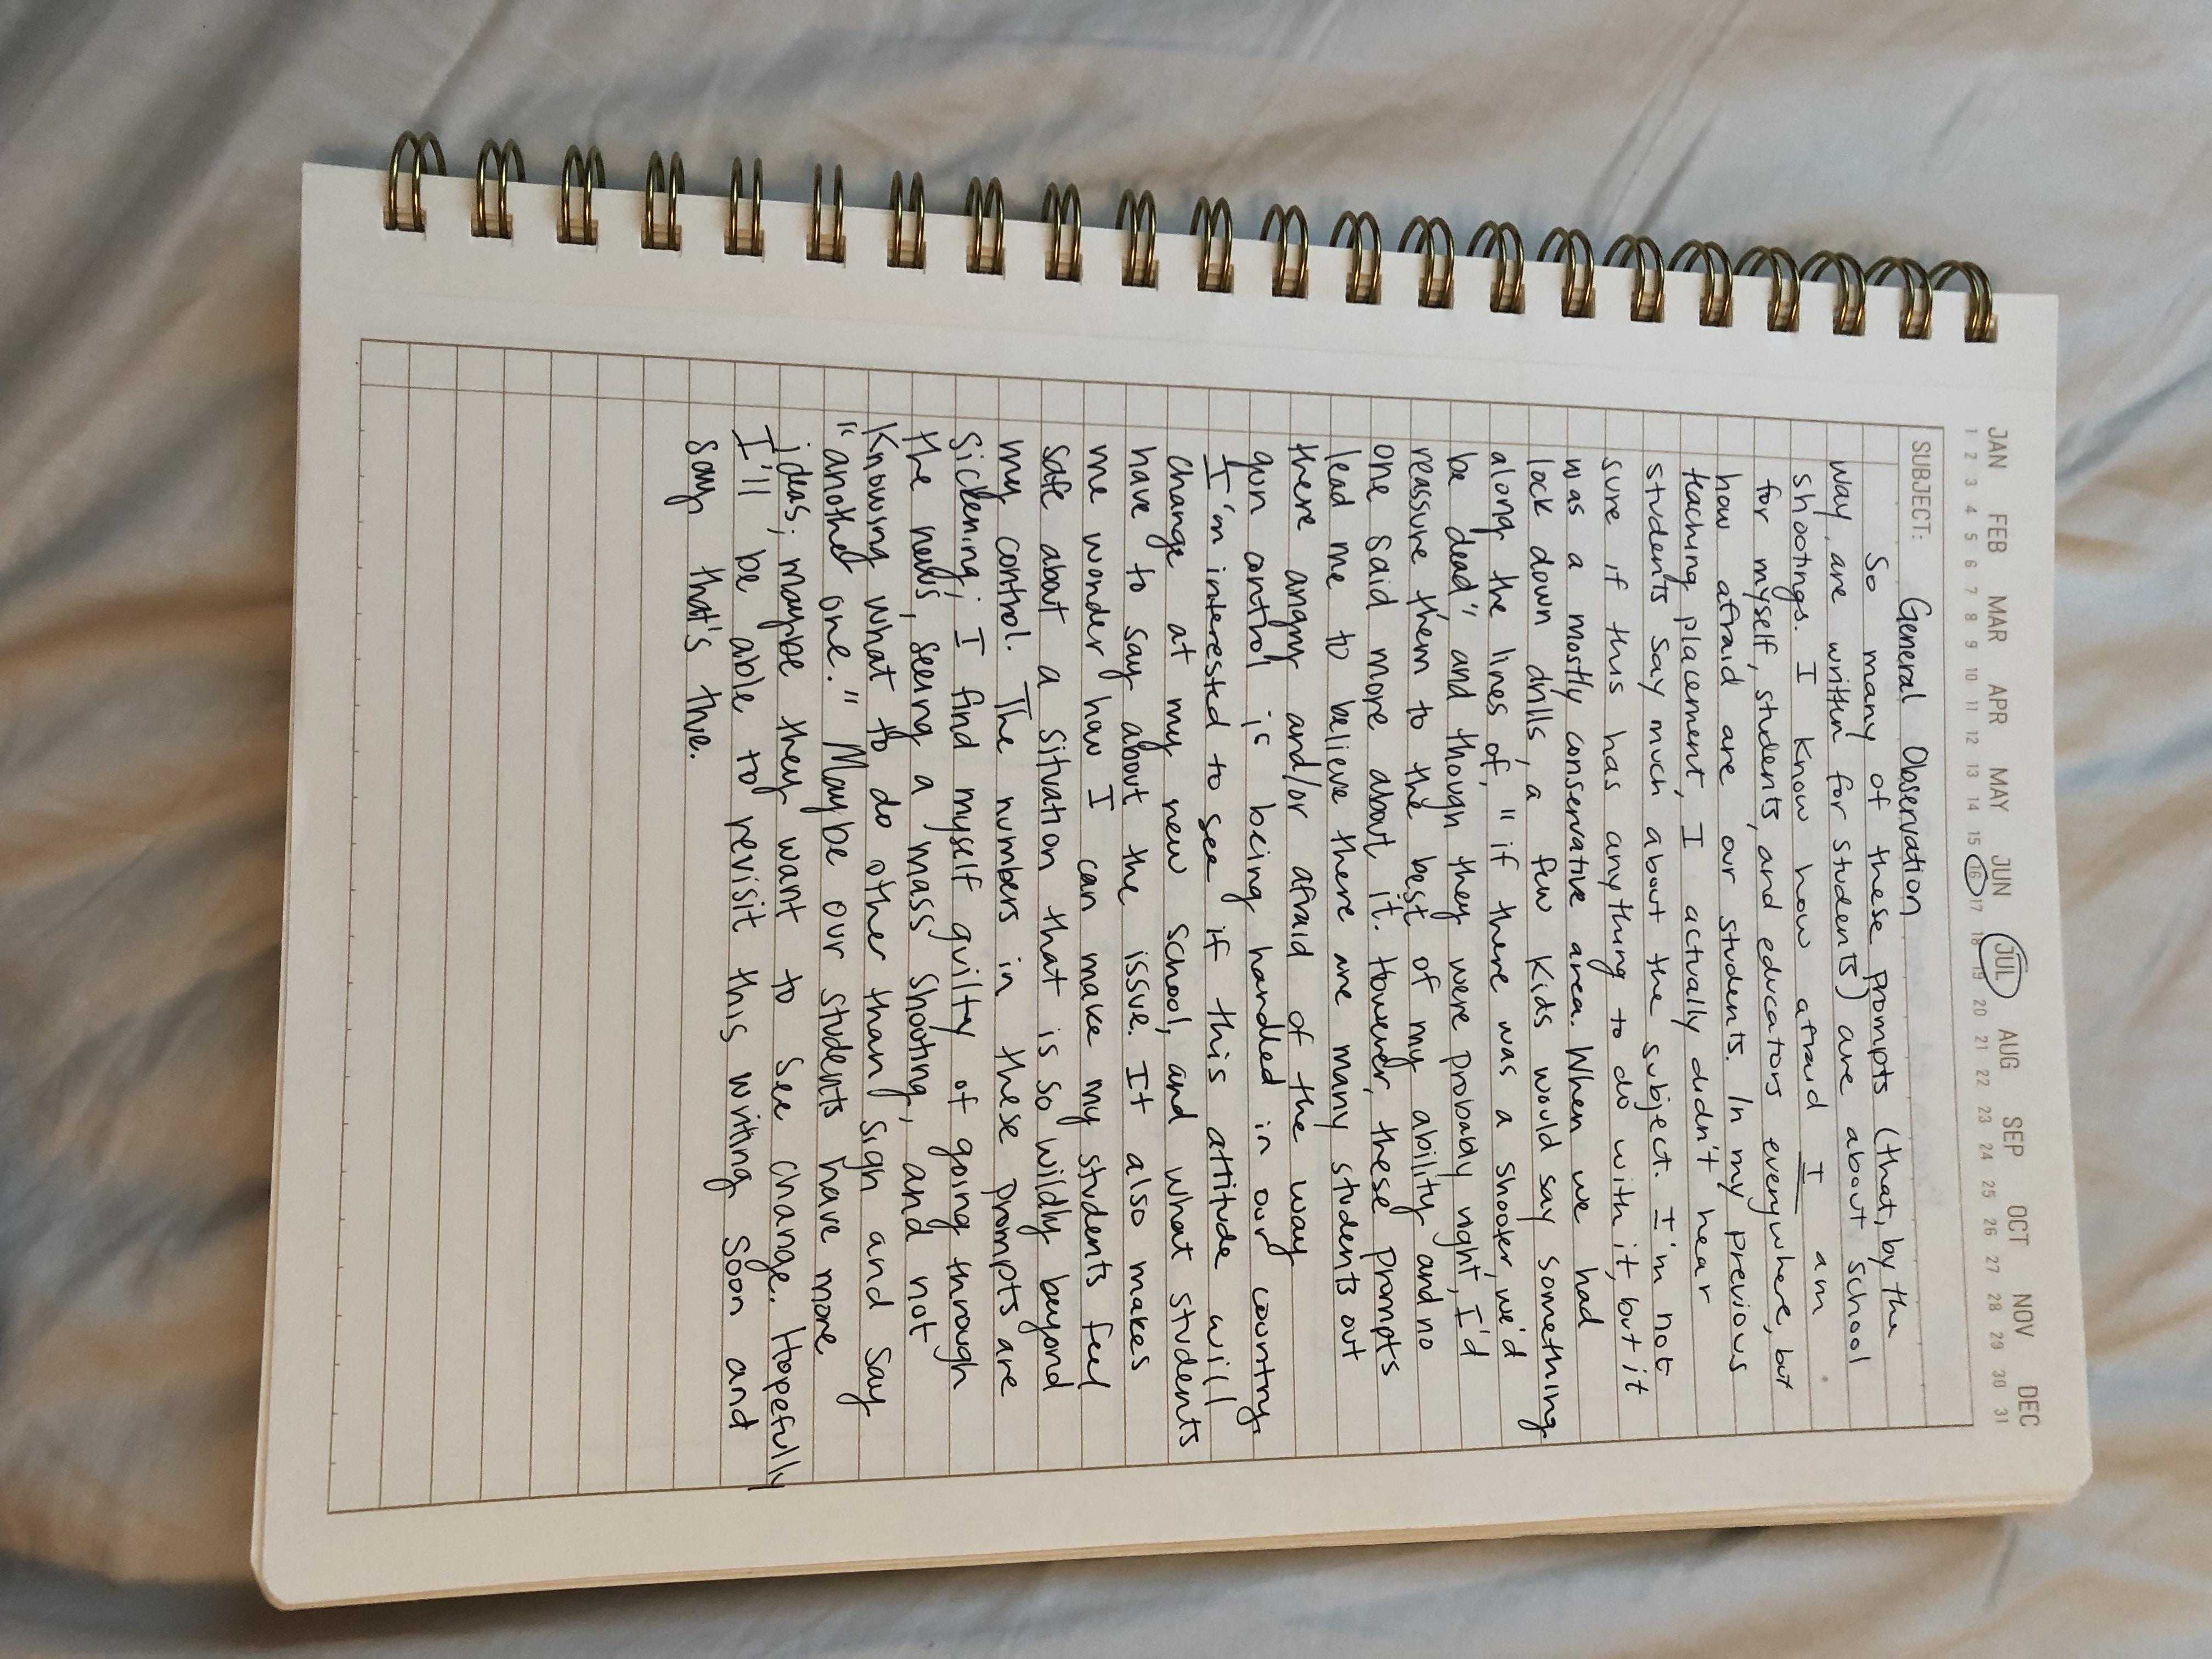 JAN FEB MAR APR MAY JUN JUL AUG SEP OCT NOV DEC
1 2 3 4 5 6 7 8 9 10 11 12 13 14 15 16 17 18 19 20 21 22 23 24 25 26 27 28 29 30 31
SUBJECT: General Observation
So many of these prompts (that, by the
way, are written for students) are about school
shootings. I know how afraid I am
for myself, students, and educators everywhere, but
how afraid are our students. In my previous
teaching placement, I actually didn't hear
students say much about the subject. I'm not
sure if this has anything to do with it, but it
was a mostly conservative area. When we had
lock down drills, a few kids would say something
along the lines of, "if there was a shooter, we'd
be dead" and though they were probably right, I'd
reassure them to the best of my ability and no
one said more about it. However, these prompts
lead me to believe there are many students out
there angry and/or afraid of the way
gun control is being handled in our country.
I'm interested to see if this attitude will
change at my new school, and what students
have to say about the issue. It also makes
me wonder how I can make my students feel
safe about a situation that is so wildly beyond
my control. The numbers in these prompts are
sickening; I find myself guilty of going through
the news, seeing a mass shooting, and not
knowing what to do other than sigh and say
"another one." Maybe our students have more
ideas; maybe they want to see change. Hopefully
I'll be able to revisit this writing soon and
say that's true.